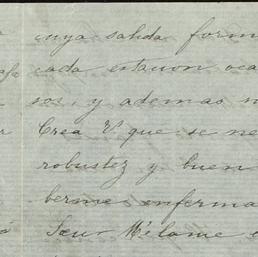 cuya salida form
cada estacion oca
sos, y ademas n
Crea V. que se ne
robustez y buen
berme enferma
á